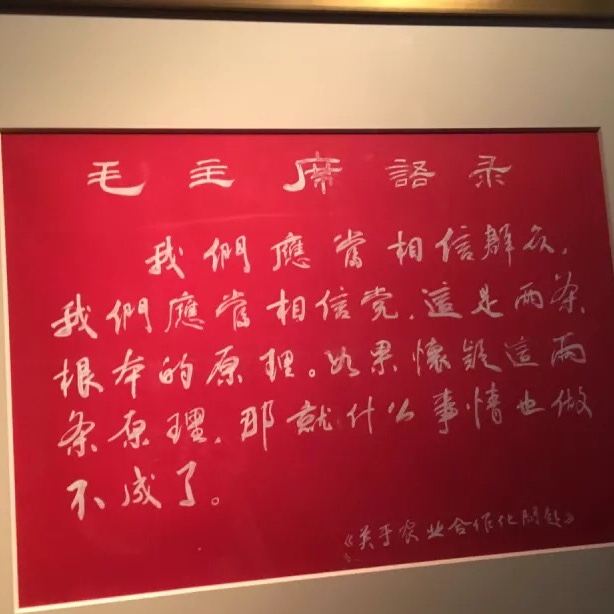 毛主席語录
我們應當相信群众，
我們應當相信党，這是两条
根本的原理。如果懷疑這兩
条原理，那就什么事情也做
不成了。
《关于农业合作化问题》